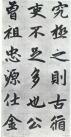 究極之則古循
吏不足多也公
曾祖忠源仕金